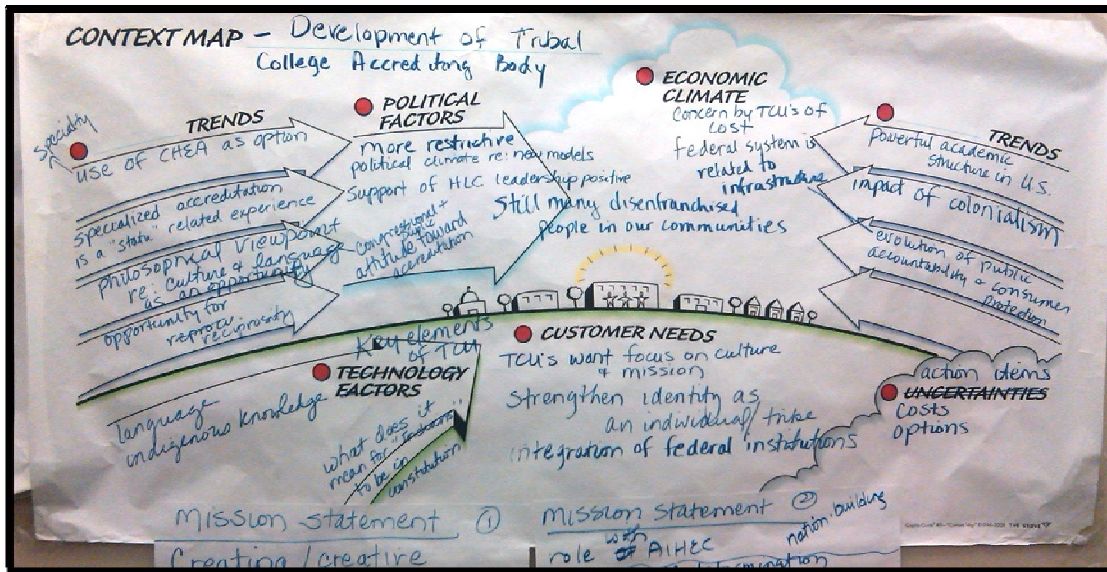 CONTEXT MAP - Development of Tribal
College Accrediting Body
TRENDS
specialty
use of CHEA as option
specialized accreditation
is a "state" related experience
Philosophical Viewpoint
re: culture & language
as an opportunity
opportunity for
reciprocity
POLITICAL
FACTORS
more restrictive
political climate re: new models
Support of HLC leadership positive
Still many disenfranchised
people in our communities
congressional +
attitude toward
accreditation
ECONOMIC
CLIMATE
Concern by TCU's of
cost
federal system is
related to
infrastructure
TRENDS
Powerful academic
structure in U.S.
impact of colonialism
evolution of public
accountability & consumer
protection
Key elements
of TCU
TECHNOLOGY
FACTORS
language
indigenous knowledge
what does it
mean for
to be in
constitution
CUSTOMER NEEDS
TCU's want focus on culture
& mission
strengthen identity as
an individual/tribe
integration of federal institutions
action items
UNCERTAINTIES
costs
options
Mission Statement ①
Creating/creative
Mission Statement ②
with
role AIHEC
nation-building